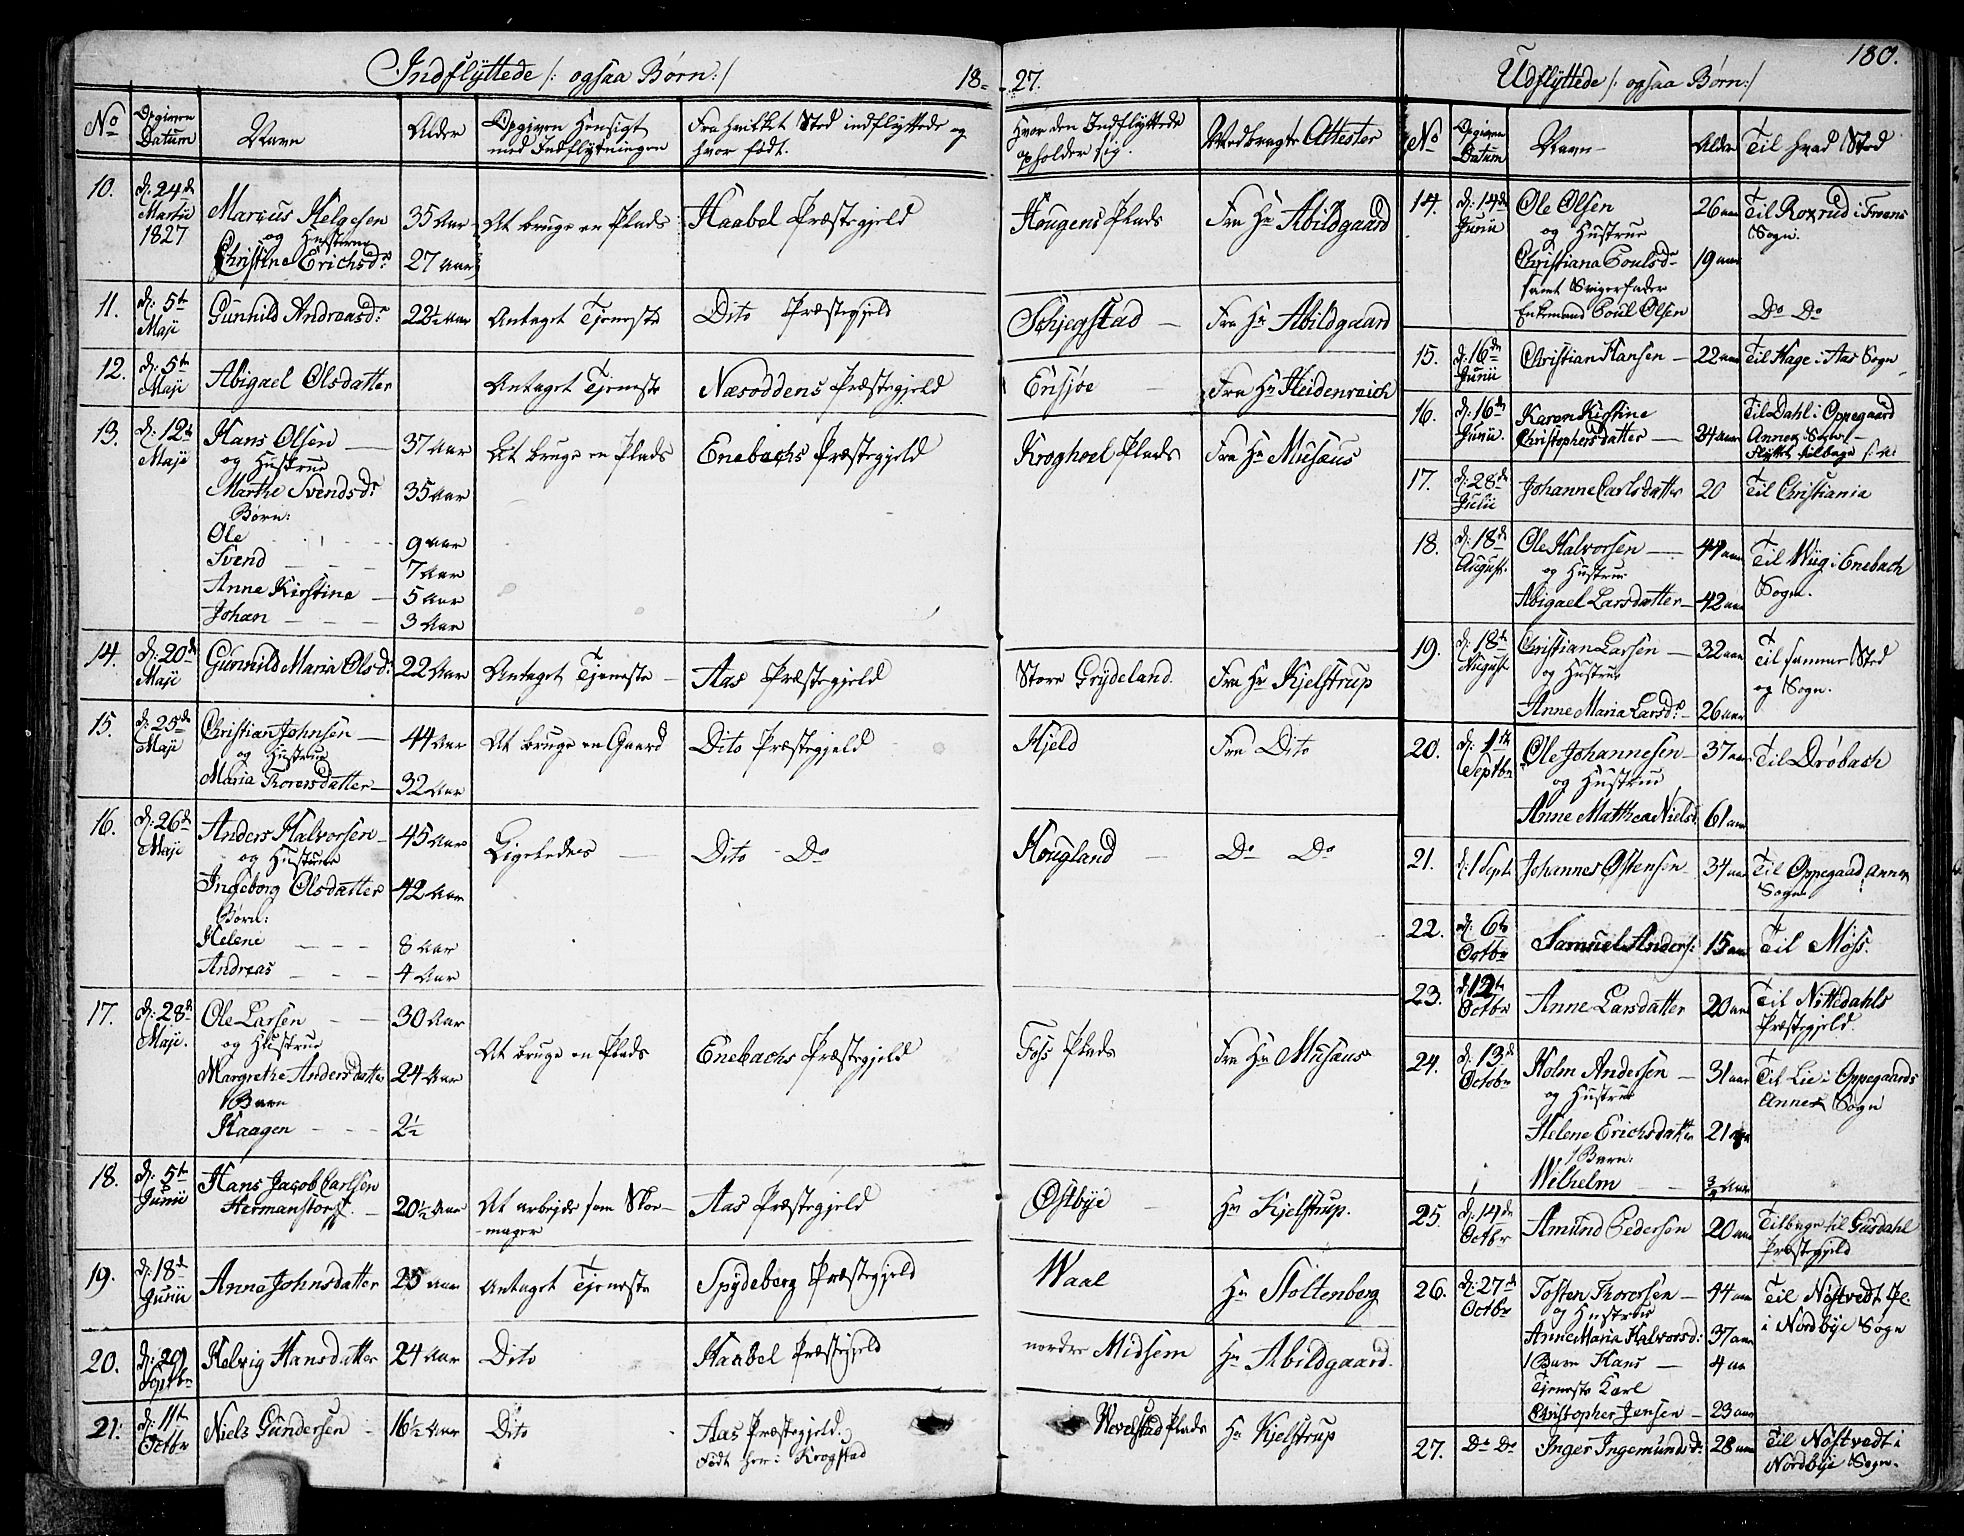 Indflÿttede /: ogsaa Børn :/ 18-27.
No
Opgiven Datum
Navn
Alder
Opgiven Hensigt med Indflÿtningen
Fra hvilket Sted indflÿttede og hvor født.
Hvor den Indflÿttede opholder sig.
Medbragte Attester
10. d: 24de Martii 1827
Marcus Helgesen 35 Aar
og Hustrue
Christine Erichsdr 27 Aar
At bruge en Plads
Haabel Præstegjeld
Hougens Plads
Fra Hr Abildgaard
11. d: 5te Maji
Gunhild Andreasdr 22½ Aar
Antaget Tjeneste
Dito Præstegjeld
Schjegstad
Fra Hr Abildgaard
12. d: 5te Maji
Abigael Olsdatter
Antaget Tjeneste
Næsoddens Præstegjeld
Ensjøe
Fra Hr Heidenreich
13. d: 12te Maji
Hans Olsen 37 Aar
og Hustrue
Marthe Svendsdr 35 Aar
Børn:
Ole 9 Aar
Svend 7 Aar
Anne Kirstine 5 Aar
Johan 3 Aar
At bruge en Plads
Enebachs Præstegjeld
Kroghoel Plads
Fra Hr Musæus
14. d: 20de Maji
Gunnild Maria Olsd: 22 Aar
Antaget Tjeneste
Aas Præstegjeld
Store Grÿdeland
Fra Hr Kjelstrup
15. d: 25de Maji
Christian Johnsen 44 Aar
og Hustrue
Maria Thoresdatter 32 Aar
At bruge en Gaard
Dito Præstegjeld
Hjeld
Fra Dito
16. d: 26de Maji
Anders Halvorsen 45 Aar
og Hustrue
Ingeborg Olsdatter 42 Aar
Børn:
Helene 8 Aar
Andreas 4 Aar
Ligeledes
Dito Do
Hougland
Do Do
17. d: 28de Maji.
Ole Larsen 30 Aar
og Hustrue
Margrethe Andersdatter 24 Aar
1 Barn
Haagen 2½
At bruge en Plads
Enebachs Præstegjeld
Foss Plads
Fra Hr Musæus
18. d: 5te Junii
Hans Jacob Carlsen
Hermanstorf 20½ Aar
At arbejde som Skoe-
mager
Aas Præstegjeld
Østbÿe
Hr Kjelstrup.
19. d: 18de Junii
Anne Johnsdatter 25 Aar
Antaget Tjeneste
Spÿdeberg Præstegjeld
Waal
Hr Stoltenberg
20. d: 20 Septbr
Helvig Hansdatter 24 Aar
Dito
Haabel Præstegjeld
nordre Midsem
Hr Abildgaard.
21. d: 11te Octbr
Niels Gundersen 16½ Aar
Dito
Aas Præstegjeld.
Født her i Krogstad
Wevelstad Plads
Hr Kjelstrup
Udflÿttede /: ogsaa Børn :/
180.
No
Opgiven Datum
Navn
Alder
Til hvad Sted
14. d: 14de Junii
Ole Olsen 26 aar
og Hustrue
Christiana Poulsdr 19 aar
samt Svigerfader
Enkemand Poul Olsen
Til Roxrud i Froens Sogn.
Do Do
15. d: 16de Junii
Christian Hansen 22 aar
Til Hage i Aas Sogn
16. d: 16de Junii.
Karen Kirstine
Christophersdatter 24 aar
Til Dahl i Oppegaard
Annex Sogn
flÿttet tilbage
17. d: 28de Julii
Johanne Carlsdatter 20
Til Christiania
18. d: 18de August.
Ole Halvorsen 44 aar
og Hustrue
Abigael Larsdatter 42 aar
Til Wiig i Enebach Sogn.
19. d: 18de August
Christian Larsen 32 aar
og Hustrue
Anne Maria Larsdr 26 aar
Til samme Sted
og Sogn.
20. d: 1ste Septbr
Ole Johannesen 37 aar
og Hustrue
Anne Mathea Nielsd: 61 aar
Til Drøbach
21. d: 1 Sept.
Johannes Østensen 34 aar
Til Oppegaard Annex Sogn
22. d: 6te Octbr
Samuel Anders: 15 aar
Til Moss.
23. d 12te Octbr
Anne Larsdatter 20 aar
Til Nittedahls
Præstegjeld.
24. d: 13de Octobr
Holm Andersen 31 aar
og Hustrue
Helene Erichsdatter 21 aar
1 Barn:
Wilhelm ¾ Aar
Til Lie i Oppegaards
Annex Sogn
25. d: 14de Octbr
Amund Pedersen 20 aar
Tilbage til Gusdahl
Præstegjeld
26. d: 27de Octbr
Tosten Thorersen 44 aar
og Hustrue
Anne Maria Halvorsd: 37 aar
1 Barn Hans 4 aar
Tjeneste Karl
Christopher Jensen 23 aar
Til Nøstvedt
i Nordbÿe Sogn
27. Do Do
Inger Ingemundsdr 28 aar
Til Nøstvedt i
Nordbÿe Sogn.